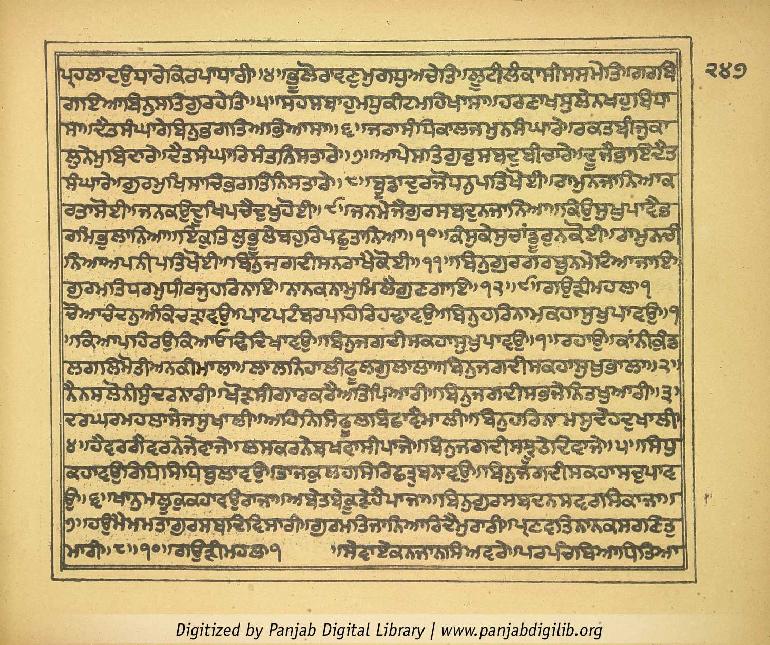 ਪ੍ਰਹਲਾਦਉਧਾਰੇਕਿਰਪਾਧਾਰੀ॥੪॥ਭੂਲੋਰਾਵਣੁਮੁਗਧੁਅਚੇਤਿ॥ਲੂਟੀਲੰਕਾਸੀਸਸਮੇਤਿ॥ਗਰਬਿ ੨੪੭
ਗਇਆਬਿਨੁਸਤਿਗੁਰਹੇਤਿ॥੫॥ਸਹਸਬਾਹੁਮਧੁਕੀਟਮਹਿਖਾਸਾ॥ਹਰਣਾਖਸੁਲੇਨਖਹੁਬਿਧਾ
ਸਾ॥ਦੈਤਸੰਘਾਰੇਬਿਨੁਭਗਤਿਅਭਿਆਸਾ॥੬॥ਜਰਾਸੰਧਿਕਾਲਜਮੁਨਸੰਘਾਰੇ॥ਰਕਤਬੀਜੁਕਾ
ਲੁਨੇਮੁਬਿਦਾਰੇ॥ਦੈਤਸੰਘਾਰਿਸੰਤਨਿਸਤਾਰੇ॥੭॥ਆਪੇਸਤਿਗੁਰੁਸਬਦੁਬੀਚਾਰੇ॥ਦੂਜੈਭਾਇਦੈਤ
ਸੰਘਾਰੇ॥ਗੁਰਮੁਖਿਸਾਚਿਭਗਤਿਨਿਸਤਾਰੇ॥੮॥ਬੂਡਾਦੁਰਜੋਧਨੁਪਤਿਖੋਈ॥ਰਾਮੁਨਜਾਨਿਆਕ
ਰਤਾਸੋਈ॥ਜਨਕਉਦੂਖਿਪਚੈਦੁਖੁਹੋਈ॥੯॥ਜਨਮੇਜੈਗੁਰਸਬਦੁਨਜਾਨਿਆ॥ਕਿਉਸੁਖੁਪਾਵੈਭ
ਰਮਿਭੁਲਾਨਿਆ॥ਇਕੁਤਿਲੁਭੂਲੇਬਹੁਰਿਪਛੁਤਾਨਿਆ॥੧੦॥ਕੰਸੁਕੇਸੁਚਾਂਡੂਰੁਨਕੋਈ॥ਰਾਮੁਨਚੀ
ਨਿਆਅਪਨੀਪਤਿਖੋਈ॥ਬਿਨੁਜਗਦੀਸਨਰਾਖੈਕੋਈ॥੧੧॥ਬਿਨੁਗੁਰਗਰਬੁਨਮੇਟਿਆਜਾਇ॥
ਗੁਰਮਤਿਧਰਮੁਧੀਰਜੁਹਰਿਨਾਇ॥ਨਾਨਕਨਾਮੁਮਿਲੈਗੁਣਗਾਇ॥੧੨॥੯॥ਗਉੜੀਮਹਲਾ੧
ਚੋਆਚੰਦਨੁਅੰਕਿਚੜਾਵਉ॥ਪਾਟਪਟੰਬਰਪਹਿਰਿਹਢਾਵਉ॥ਬਿਨੁਹਰਿਨਾਮਕਹਾਸੁਖੁਪਾਵਉ॥੧
॥ਕਿਆਪਹਿਰਉਕਿਆਓਢਿਦਿਖਾਵਉ॥ਬਿਨੁਜਗਦੀਸਕਹਾਸੁਖੁਪਾਵਉ॥੧॥ਰਹਾਉ॥ਕਾਨੀਕੁੰਡ
ਲਗਲਿਮੋਤੀਅਨਕੀਮਾਲਾ॥ਲਾਲਨਿਹਾਲੀਫੂਲਗੁਲਾਲਾ॥ਬਿਨੁਜਗਦੀਸਕਹਾਸੁਖੁਭਾਲਾ॥੨॥
ਨੈਨਸਲੋਨੀਸੁੰਦਰਨਾਰੀ॥ਖੋੜਸੀਗਾਰਕਰੈਅਤਿਪਿਆਰੀ॥ਬਿਨੁਜਗਦੀਸਭਜੇਨਿਤਖੁਆਰੀ॥੩॥
ਦਰਘਰਮਹਲਾਸੇਜਸੁਖਾਲੀ॥ਅਹਿਨਿਸਿਫੂਲਬਿਛਾਵੈਮਾਲੀ॥ਬਿਨੁਹਰਿਨਾਮਸੁਦੇਹਦੁਖਾਲੀ॥
੪॥ਹੈਵਰਗੈਵਰਨੇਜੇਵਾਜੇ॥ਲਸਕਰਨੇਬਖਵਾਸੀਪਾਜੇ॥ਬਿਨੁਜਗਦੀਸਝੂਠੇਦਿਵਾਜੇ॥੫॥ਸਿਧੁ
ਕਹਾਵਉਰਿਧਿਸਿਧਿਬੁਲਾਵਉ॥ਤਾਜਕੁਲਹਸਿਰਿਛਤ੍ਰੁਬਨਾਵਉ॥ਬਿਨੁਜਗਦੀਸਕਹਾਸਚੁਪਾਵ
ਉ॥੬॥ਖਾਨੁਮਲੂਕੁਕਹਾਵਉਰਾਜਾ॥ਅਬੇਤਬੇਕੂੜੇਹੈਪਾਜਾ॥ਬਿਨੁਗੁਰਸਬਦਨਸਵਰਸਿਕਾਜਾ॥
੭॥ਹਉਮੈਮਮਤਾਗੁਰਸਬਦਿਵਿਸਾਰੀ॥ਗੁਰਮਤਿਜਾਨਿਆਰਿਦੈਮੁਰਾਰੀ॥ਪ੍ਰਣਵਤਿਨਾਨਕਸਰਣਿਤੁ
ਮਾਰੀ॥੮॥੧੦॥ਗਉੜੀਮਹਲਾ੧ ॥ਸੇਵਾਏਕਨਜਾਨਸਿਅਵਰੇ॥ਪਰਪੰਚਬਿਆਧਿਤਿਆ
Digitized by Panjab Digital Library | www.panjabdigilib.org